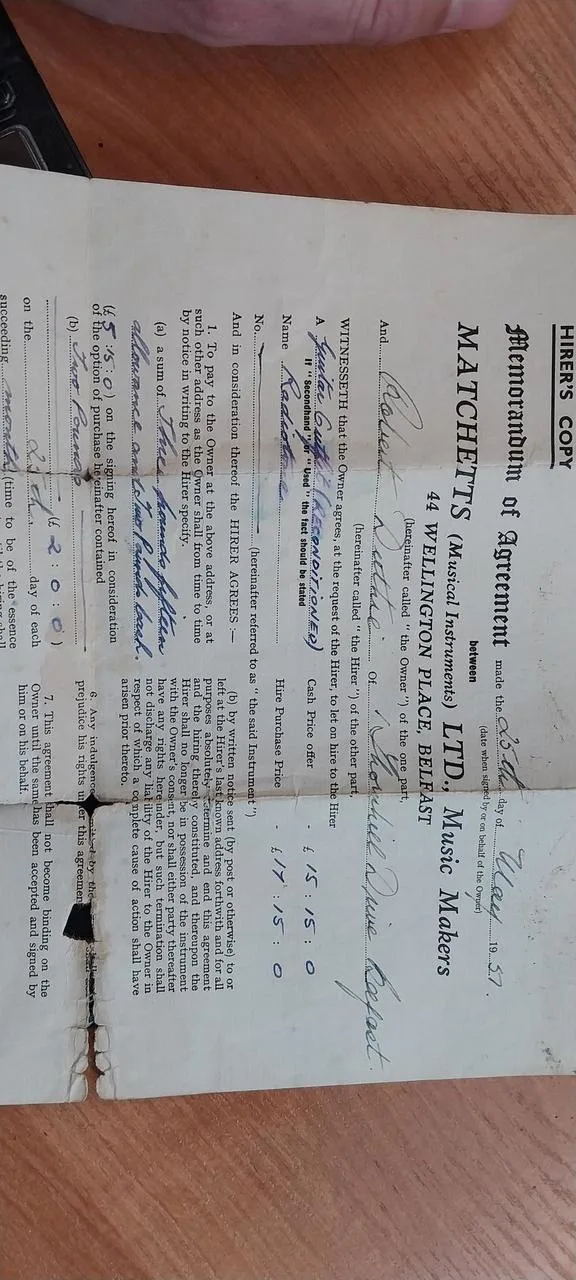 HIRER'S COPY
Memorandum of Agreement made the 25th day of May 1957.
(date when signed by or on behalf of the Owner)
between
MATCHETTS (Musical Instruments) LTD., Music Makers
44 WELLINGTON PLACE, BELFAST
(hereinafter called "the Owner") of the one part,
And Robert Of Drive Belfast.
(hereinafter called "the Hirer") of the other part,
WITNESSETH that the Owner agrees, at the request of the Hirer, to let on hire to the Hirer
A Guitar (RECONDITIONED) Cash Price offer - £ 15 : 15 : 0
If "Secondhand" or "Used" the fact should be stated
Name Hire Purchase Price - £ 17 : 15 : 0
No. (hereinafter referred to as "the said Instrument")
And in consideration thereof the HIRER AGREES :—
1. To pay to the Owner at the above address, or at
such other address as the Owner shall from time to time
by notice in writing to the Hirer specify.
(a) a sum of Three pounds fifteen
allowance and two pounds cash.
(£ 5 : 15 : 0) on the signing hereof in consideration
of the option of purchase hereinafter contained
(b) Two Pounds
(£ 2 : 0 : 0)
on the 25th day of each
succeeding month (time to be of the essence
(b) by written notice sent (by post or otherwise) to or
left at the Hirer's last known address forthwith and for all
purposes absolutely determine and end this agreement
and the hiring hereby constituted, and thereupon the
Hirer shall no longer be in possession of the instrument
with the Owner's consent, nor shall either party thereafter
have any rights hereunder, but such termination shall
not discharge any liability of the Hirer to the Owner in
respect of which a complete cause of action shall have
arisen prior thereto.
6. Any indulgence by the
prejudice his rights under this agreement
7. This agreement shall not become binding on the
Owner until the same has been accepted and signed by
him or on his behalf.